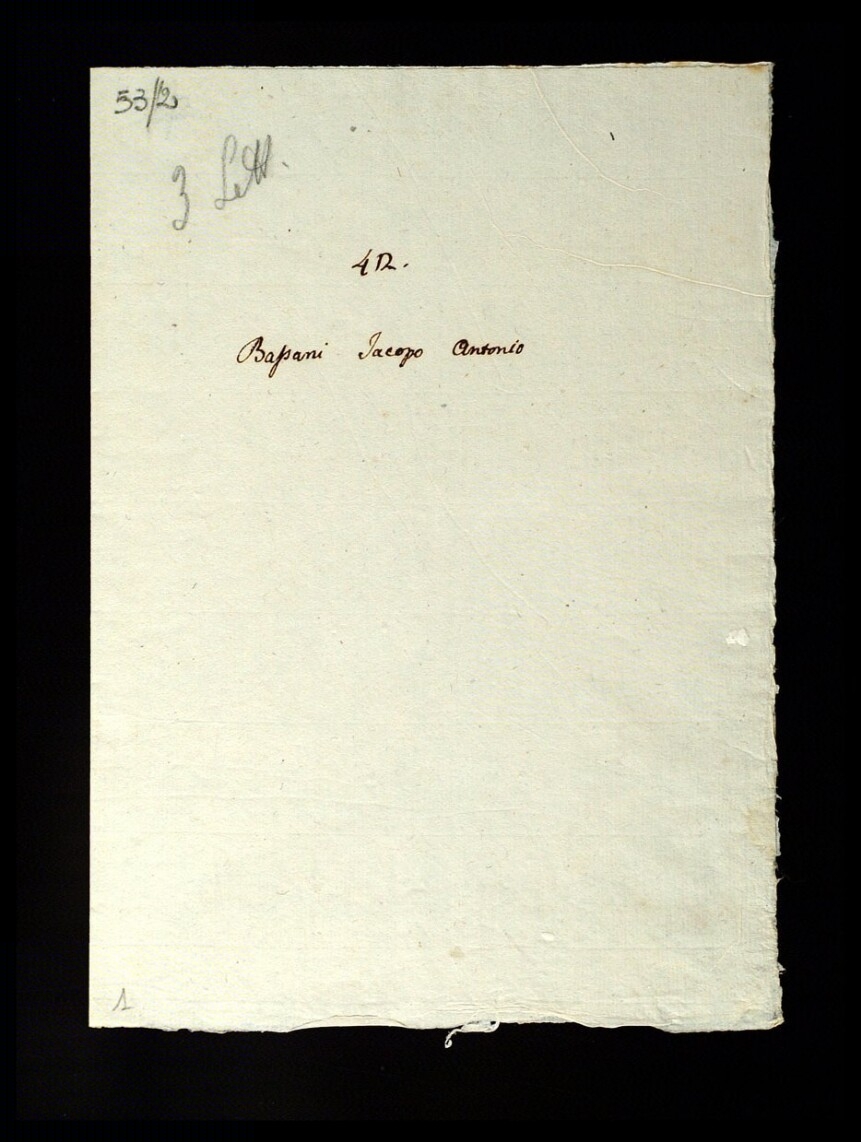 53/2
3 Lett.
412.
Baſsani Jacopo Antonio
1